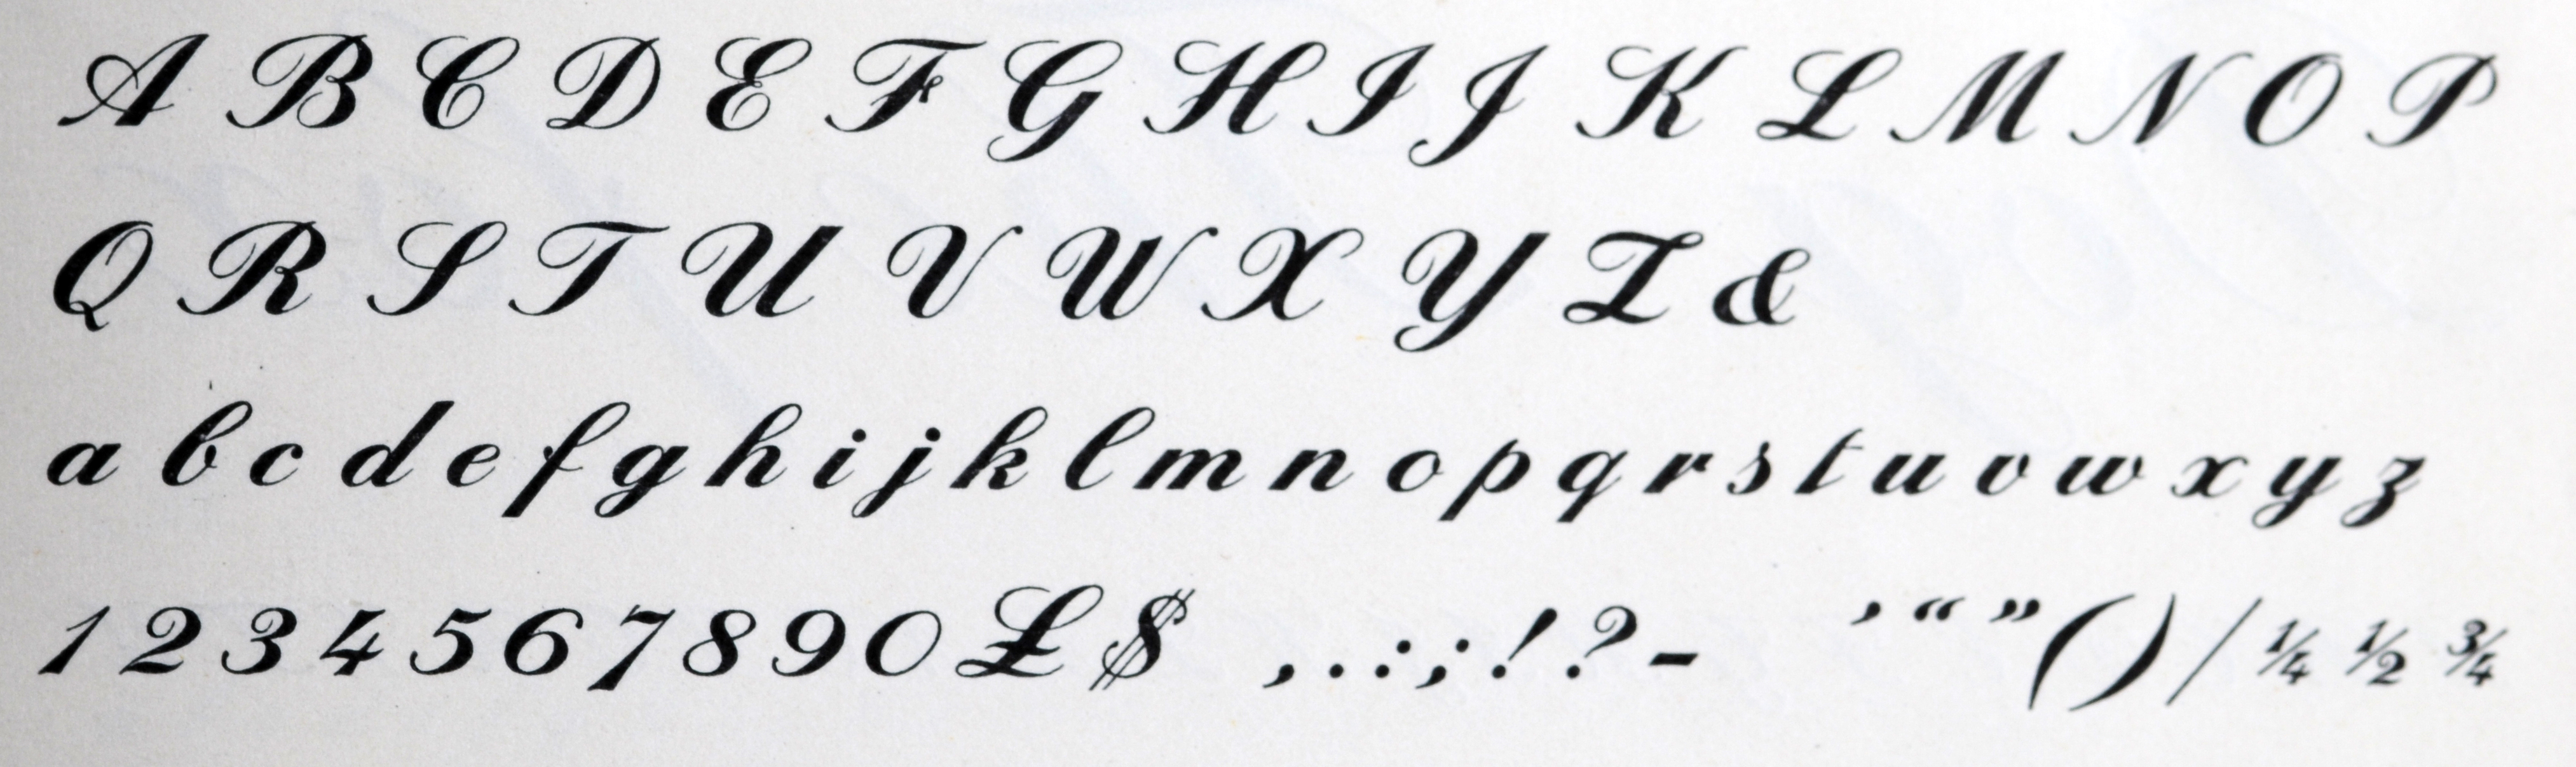 A B C D E F G H I J K L M N O P
Q R S T U V W X Y Z &
a b c d e f g h i j k l m n o p q r s t u v w x y z
1 2 3 4 5 6 7 8 9 0 £ $ , . : ; ! ? - ’ “ ” ( ) / ¼ ½ ¾